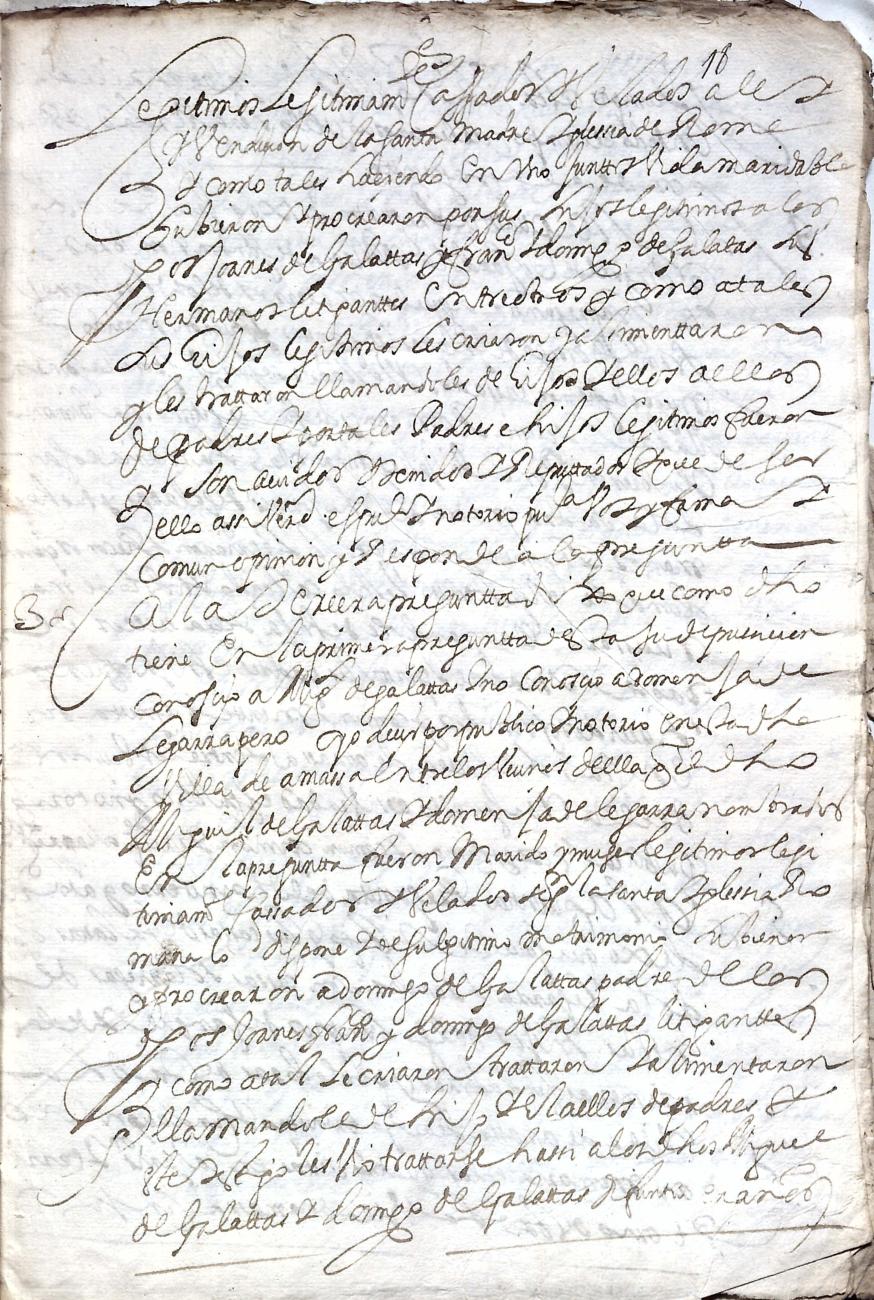 18
Legitimos Legitimamte Cassados Velados a le
Vendicion de la santa Madre Iglessia de Roma
y como tales haciendo en Uno juntos Vida maridable
Hubieron procrearon por sus hijos legitimos a los
Joanes de Galattas y Franco domingo de Galatas
Hermanos litiganttes entre otros y como a tales
sus hijos legitimos les criaron y alimenttaron
y les trattaron llamandoles de hijos y ellos a ellos
de padres y por tales Padres e hijos legitimos fueron
y son avidos tenidos y Reputtados y que de ser
ello assi Verd es pubco y notorio puca Voz y fama y
comun opinion y Responde a la pregunta
3
A la Tercera pregunta dixo que como dho
tiene en la primera pregunta de esta su deposicion
conoscio a Migl de galattas y no Conoscio a domenja de
Legarra pero oyo decir por publico y notorio en esta dha
Villa de amassa entre los Vecinos de ella q dho
Miguel de Galattas y domenja de legarra nombrados
En la pregunta fueron Marido y muger legitimos legi
timamte Cassados y Velados segn la santa Iglessia Ro
mana lo dispone y de su legitimo matrimonio hubieron
y procrearon a Domingo de Galattas padre de los
Joanes Franco y domingo de Galattas litiganttes
y como a tal le criaron trattaron y alimentaron
llamandole de hijo y el a ellos de padres y
este testigo les Vio trattarse assi a los dhos Miguel
de Galattas y domingo de Galattas difuntos